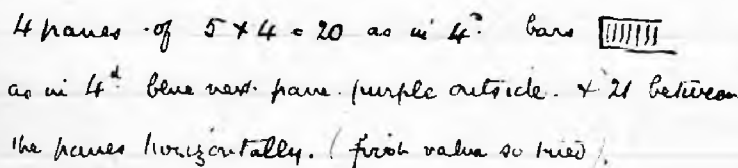 4 panes of 5 x 4 = 20 as in 4d. bars
as in 4d blue next pane. purple outside. & 21 between
the panes horizontally. (first value so tried).